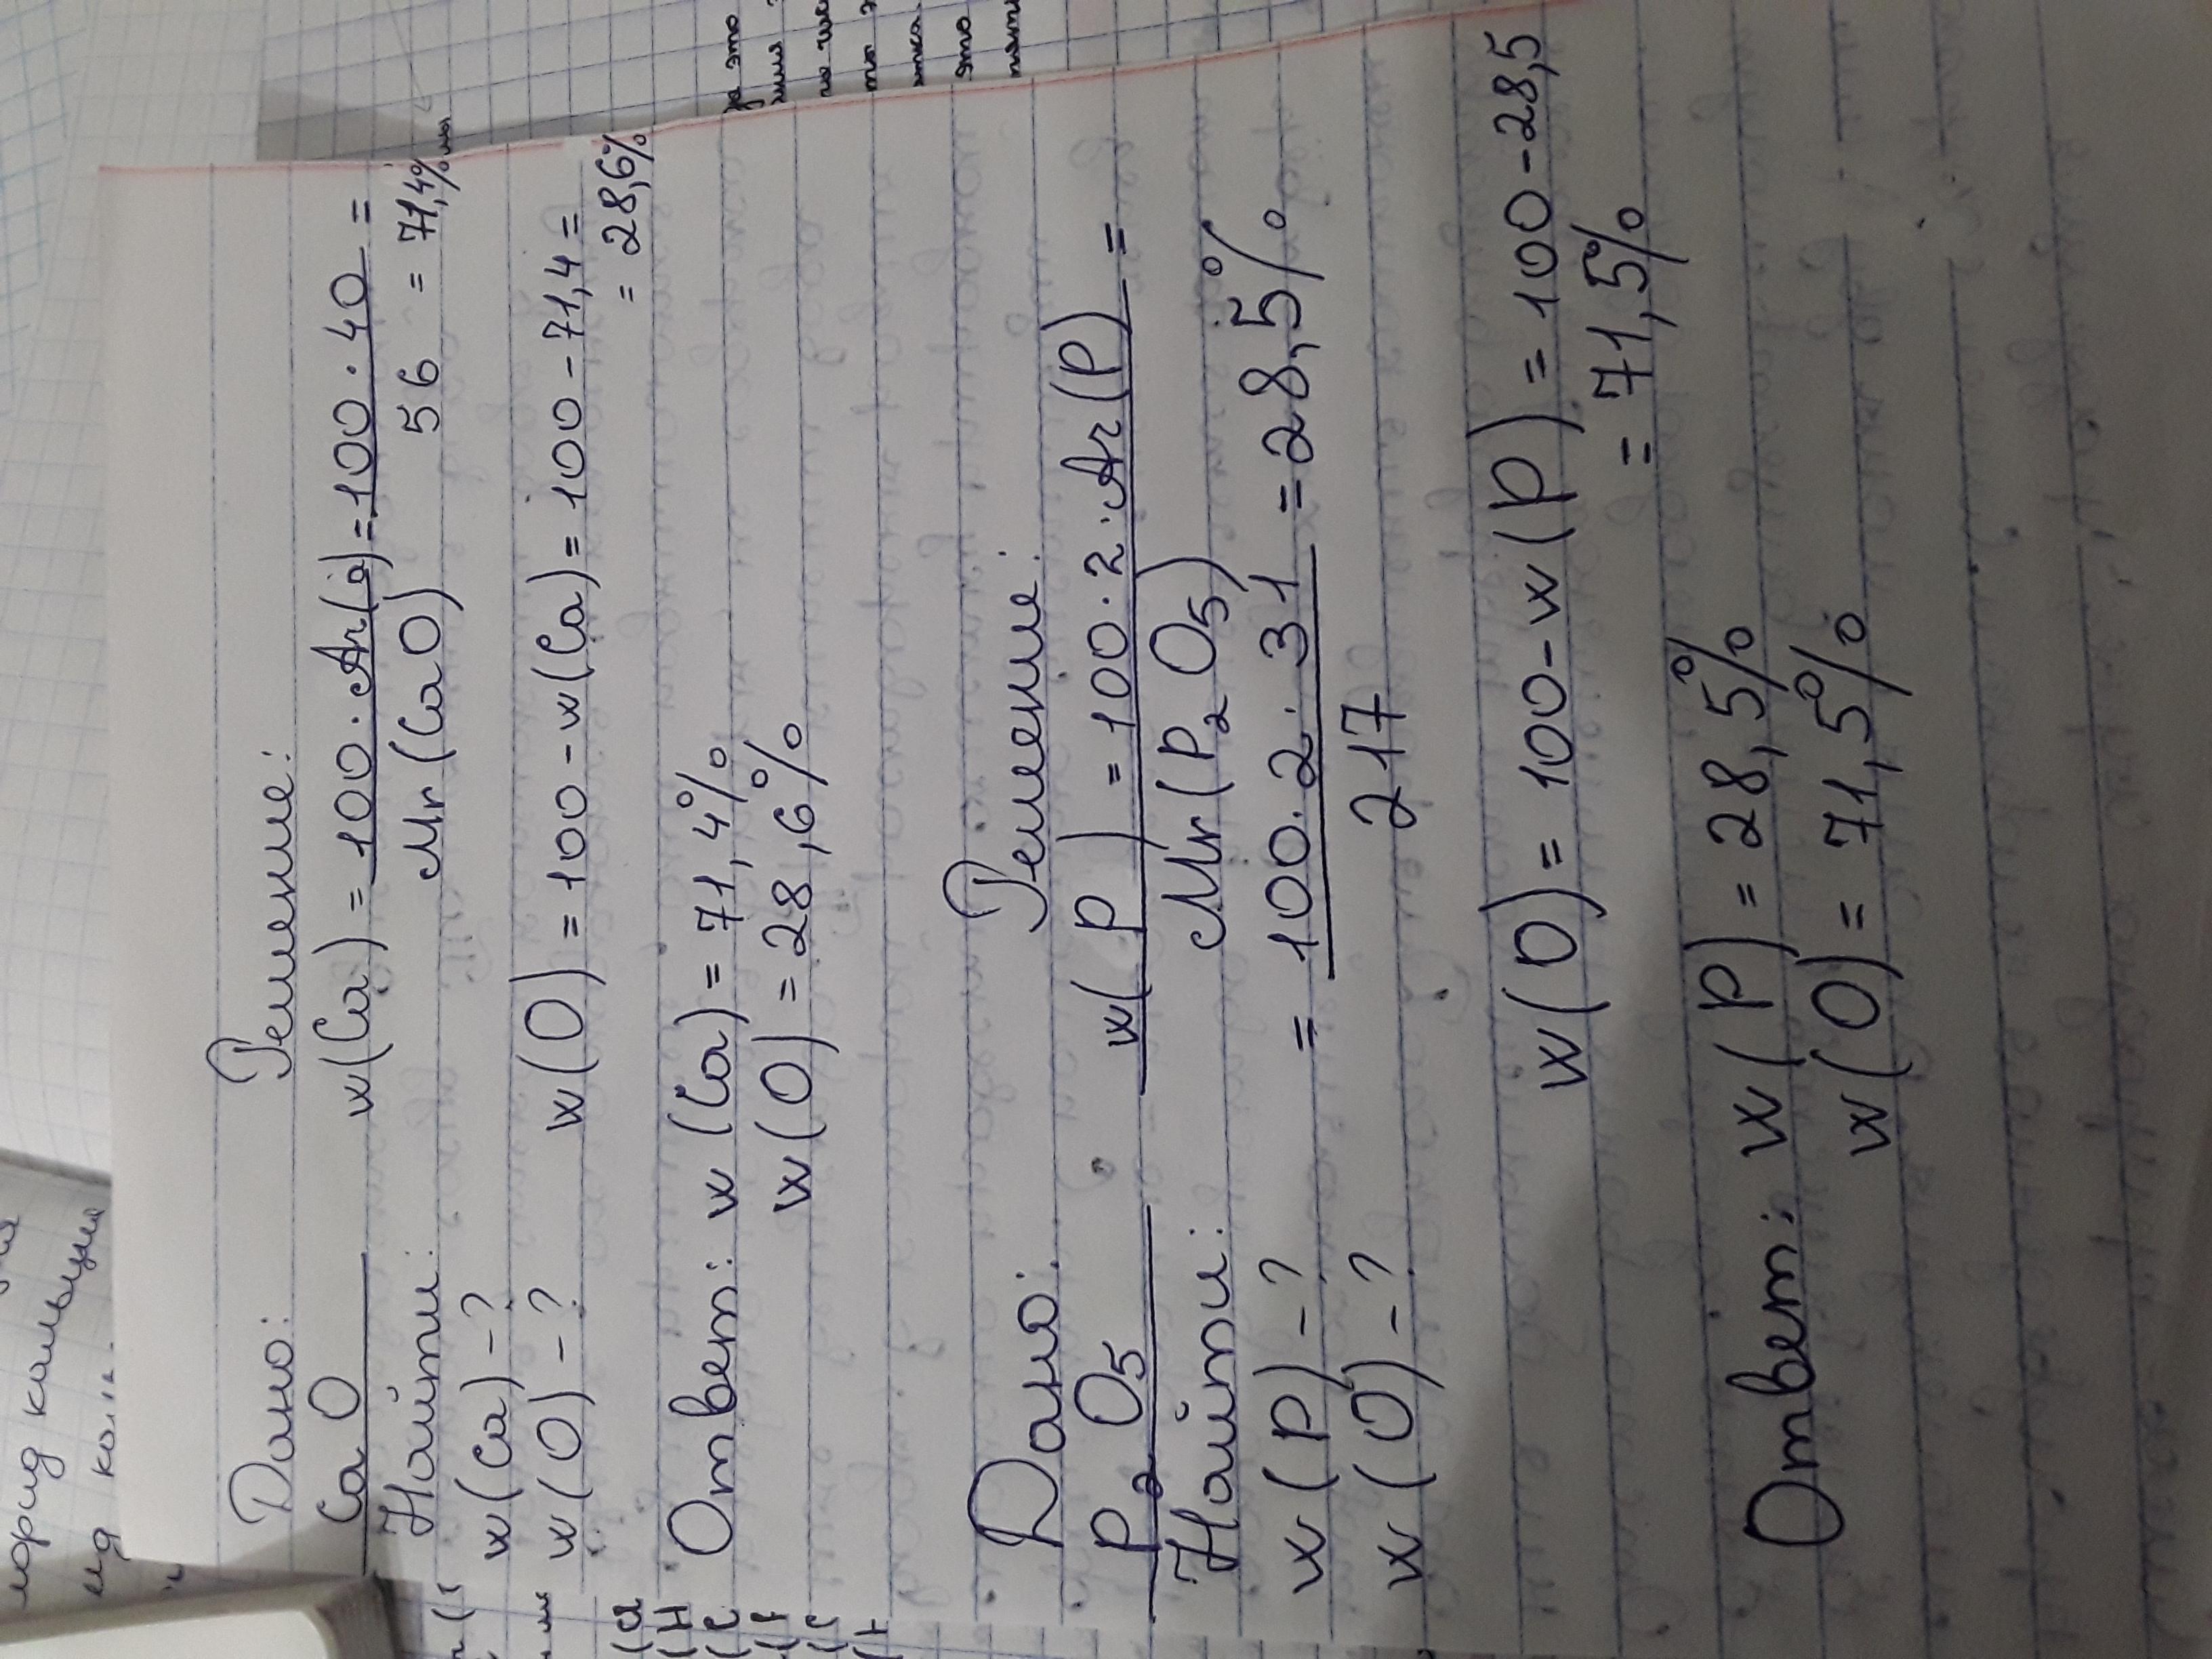 Дано: Решение:
CaO w(Ca) = 100 · Ar(Ca) = 100 · 40 =
Найти: Mr(CaO) 56 = 71,4%
w(Ca) - ?
w(O) - ? w(O) = 100 - w(Ca) = 100 - 71,4 =
= 28,6%
Ответ: w(Ca) = 71,4%
w(O) = 28,6%
Дано: Решение:
P2O5 w(P) = 100 · 2 · Ar(P) =
Найти: Mr(P2O5)
w(P) - ? = 100 · 2 · 31 = 28,5%
w(O) - ? 217
w(O) = 100 - w(P) = 100 - 28,5
= 71,5%
Ответ: w(P) = 28,5%
w(O) = 71,5%